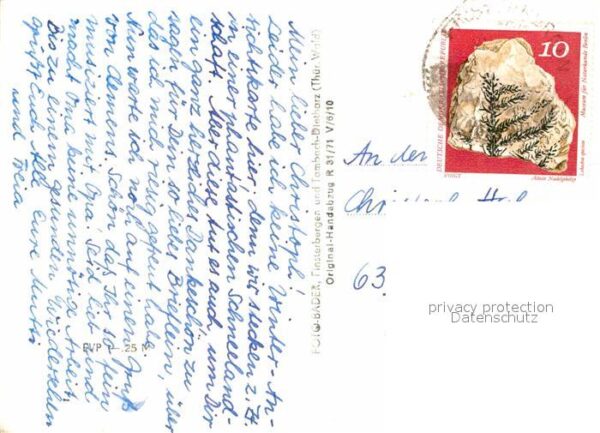 Mein lieber Christoph!
Leider habe ich keine Winter-An-
sichtskarte hier, denn wir stecken z. Zt.
in einer phantastischen Schneeland-
schaft. Aber diese tut es auch, um Dir
ein ganz herzliches Dankeschön zu
sagen für Dein so liebes Brieflein, über
das ich mich sehr gefreut habe.
Nun warte ich noch auf einen Gruß
von demms. Schön, daß Ihr so fein
musiziert mit Opa. Seid lieb und
macht Omi keine unnötige Arbeit.
Bis zum gesunden Wiedersehen
grüßt Euch Alle Eure Mutti
und
EVP -.25 M
FOTO-BADER, Finsterbergen und Tambach-Dietharz (Thür. Wald)
Original-Handabzug R 31/71 V/6/10
10
DEUTSCHE DEMOKRATISCHE REPUBLIK
Museum für Naturkunde Berlin
VOIGT
Lebachia speciosa
Älteste Nadelgehölze
An den
63
privacy protection
Datenschutz